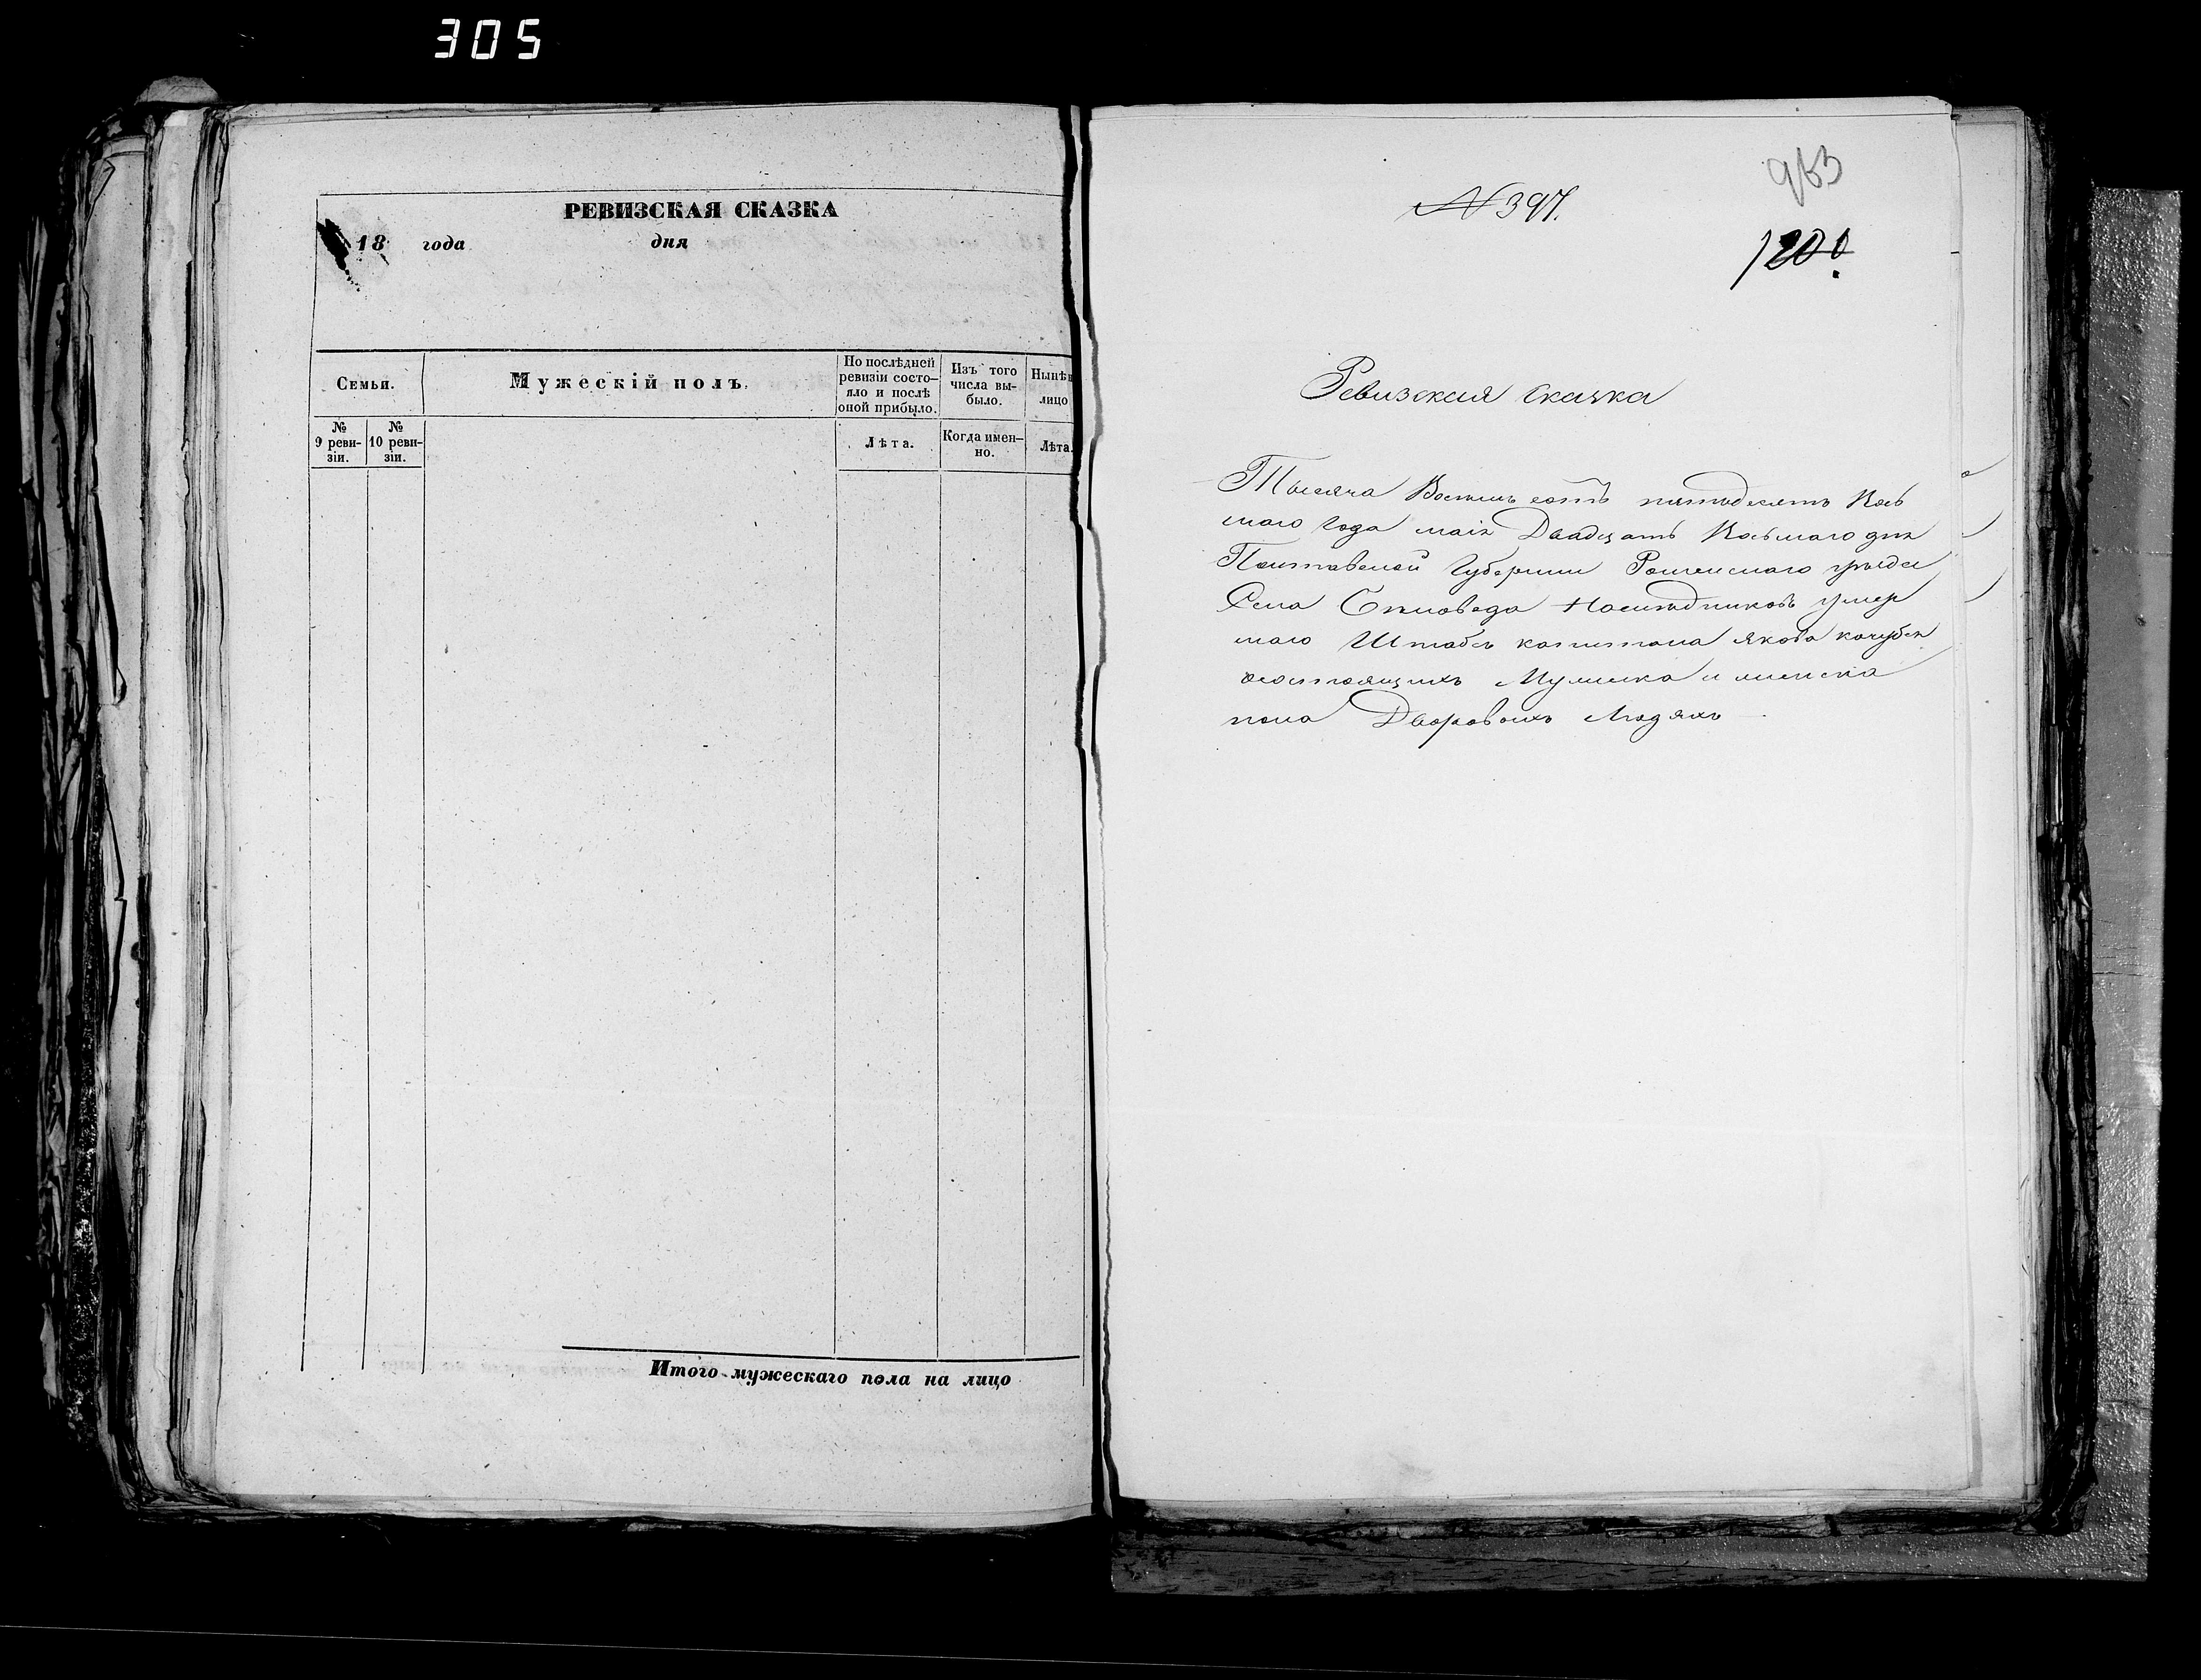 305
РЕВИЗСКАЯ СКАЗКА
18 года дня
Семьи.
Мужескій полъ.
По послѣдней ревизіи состо-
яло и послѣ оной прибыло.
Изъ того числа вы-
было.
Нынѣ
лицо
№ 9 реви-
зіи.
№ 10 реви-
зіи.
Лѣта.
Когда имен-
но.
Лѣта.
Итого мужескаго пола на лицо
963
№ 397.
1200
Ревизская сказка
Тысяча Восемь сотъ пятьдесятъ Вось
маго года маія Двадцать Восьмаго дня
Полтавской Губерніи Роменскаго уѣзда
Села Наслѣдниковъ умер
шаго Штабсъ капитана Якова кочубея
состоящихъ Мужеска и женска
пола Дворовыхъ Людяхъ